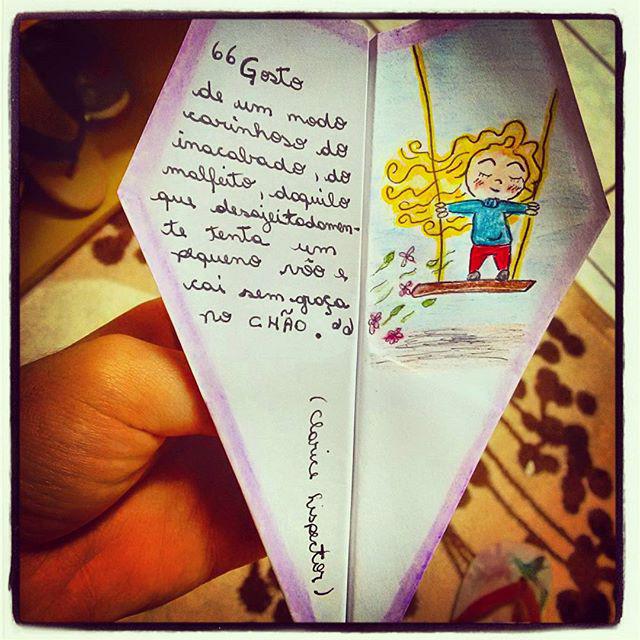 “Gosto
de um modo
carinhoso do
inacabado, do
malfeito, daquilo
que desajeitadamen-
te tenta um
pequeno vôo e
cai sem graça
no CHÃO.”
(Clarice Lispector)